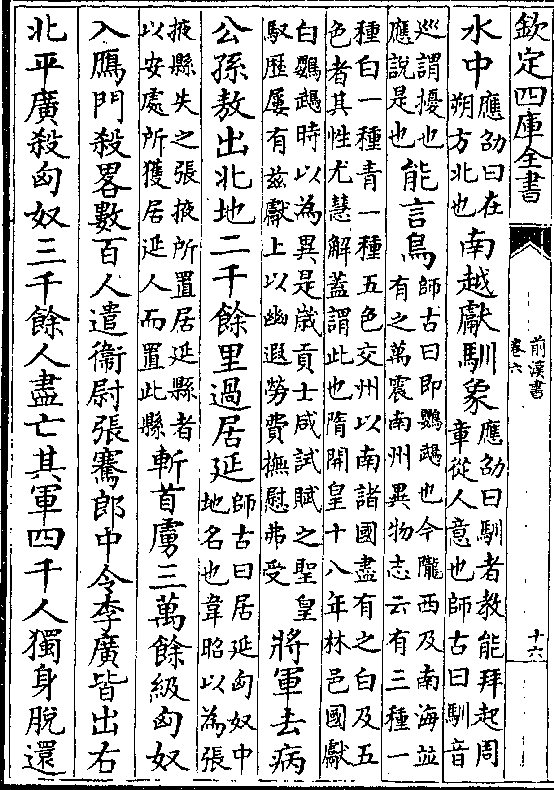 欽定四庫全書
前漢書
卷六
十六
水中應劭曰在朔方北也南越獻馴象應劭曰馴者教能拜起周章從人意也師古曰馴音
巡謂擾也應說是也能言鳥師古曰即鸚䳇也今隴西及南海並有之萬震南州異物志云有三種一
種白一種青一種五色交州以南諸國盡有之白及五色者其性尤慧解蓋謂此也隋開皇十八年林邑國獻
白鸚䳇時以為異是歲貢士咸試賦之聖皇馭歷屢有茲獻上以幽遐勞費撫慰弗受將軍去病
公孫敖出北地二千餘里過居延師古曰居延匈奴中地名也韋昭以為張
掖縣失之張掖所置居延縣者以安處所獲居延人而置此縣斬首虜三萬餘級匈奴
入鴈門殺畧數百人遣衞尉張騫郎中令李廣皆出右
北平廣殺匈奴三千餘人盡亡其軍四千人獨身脫還